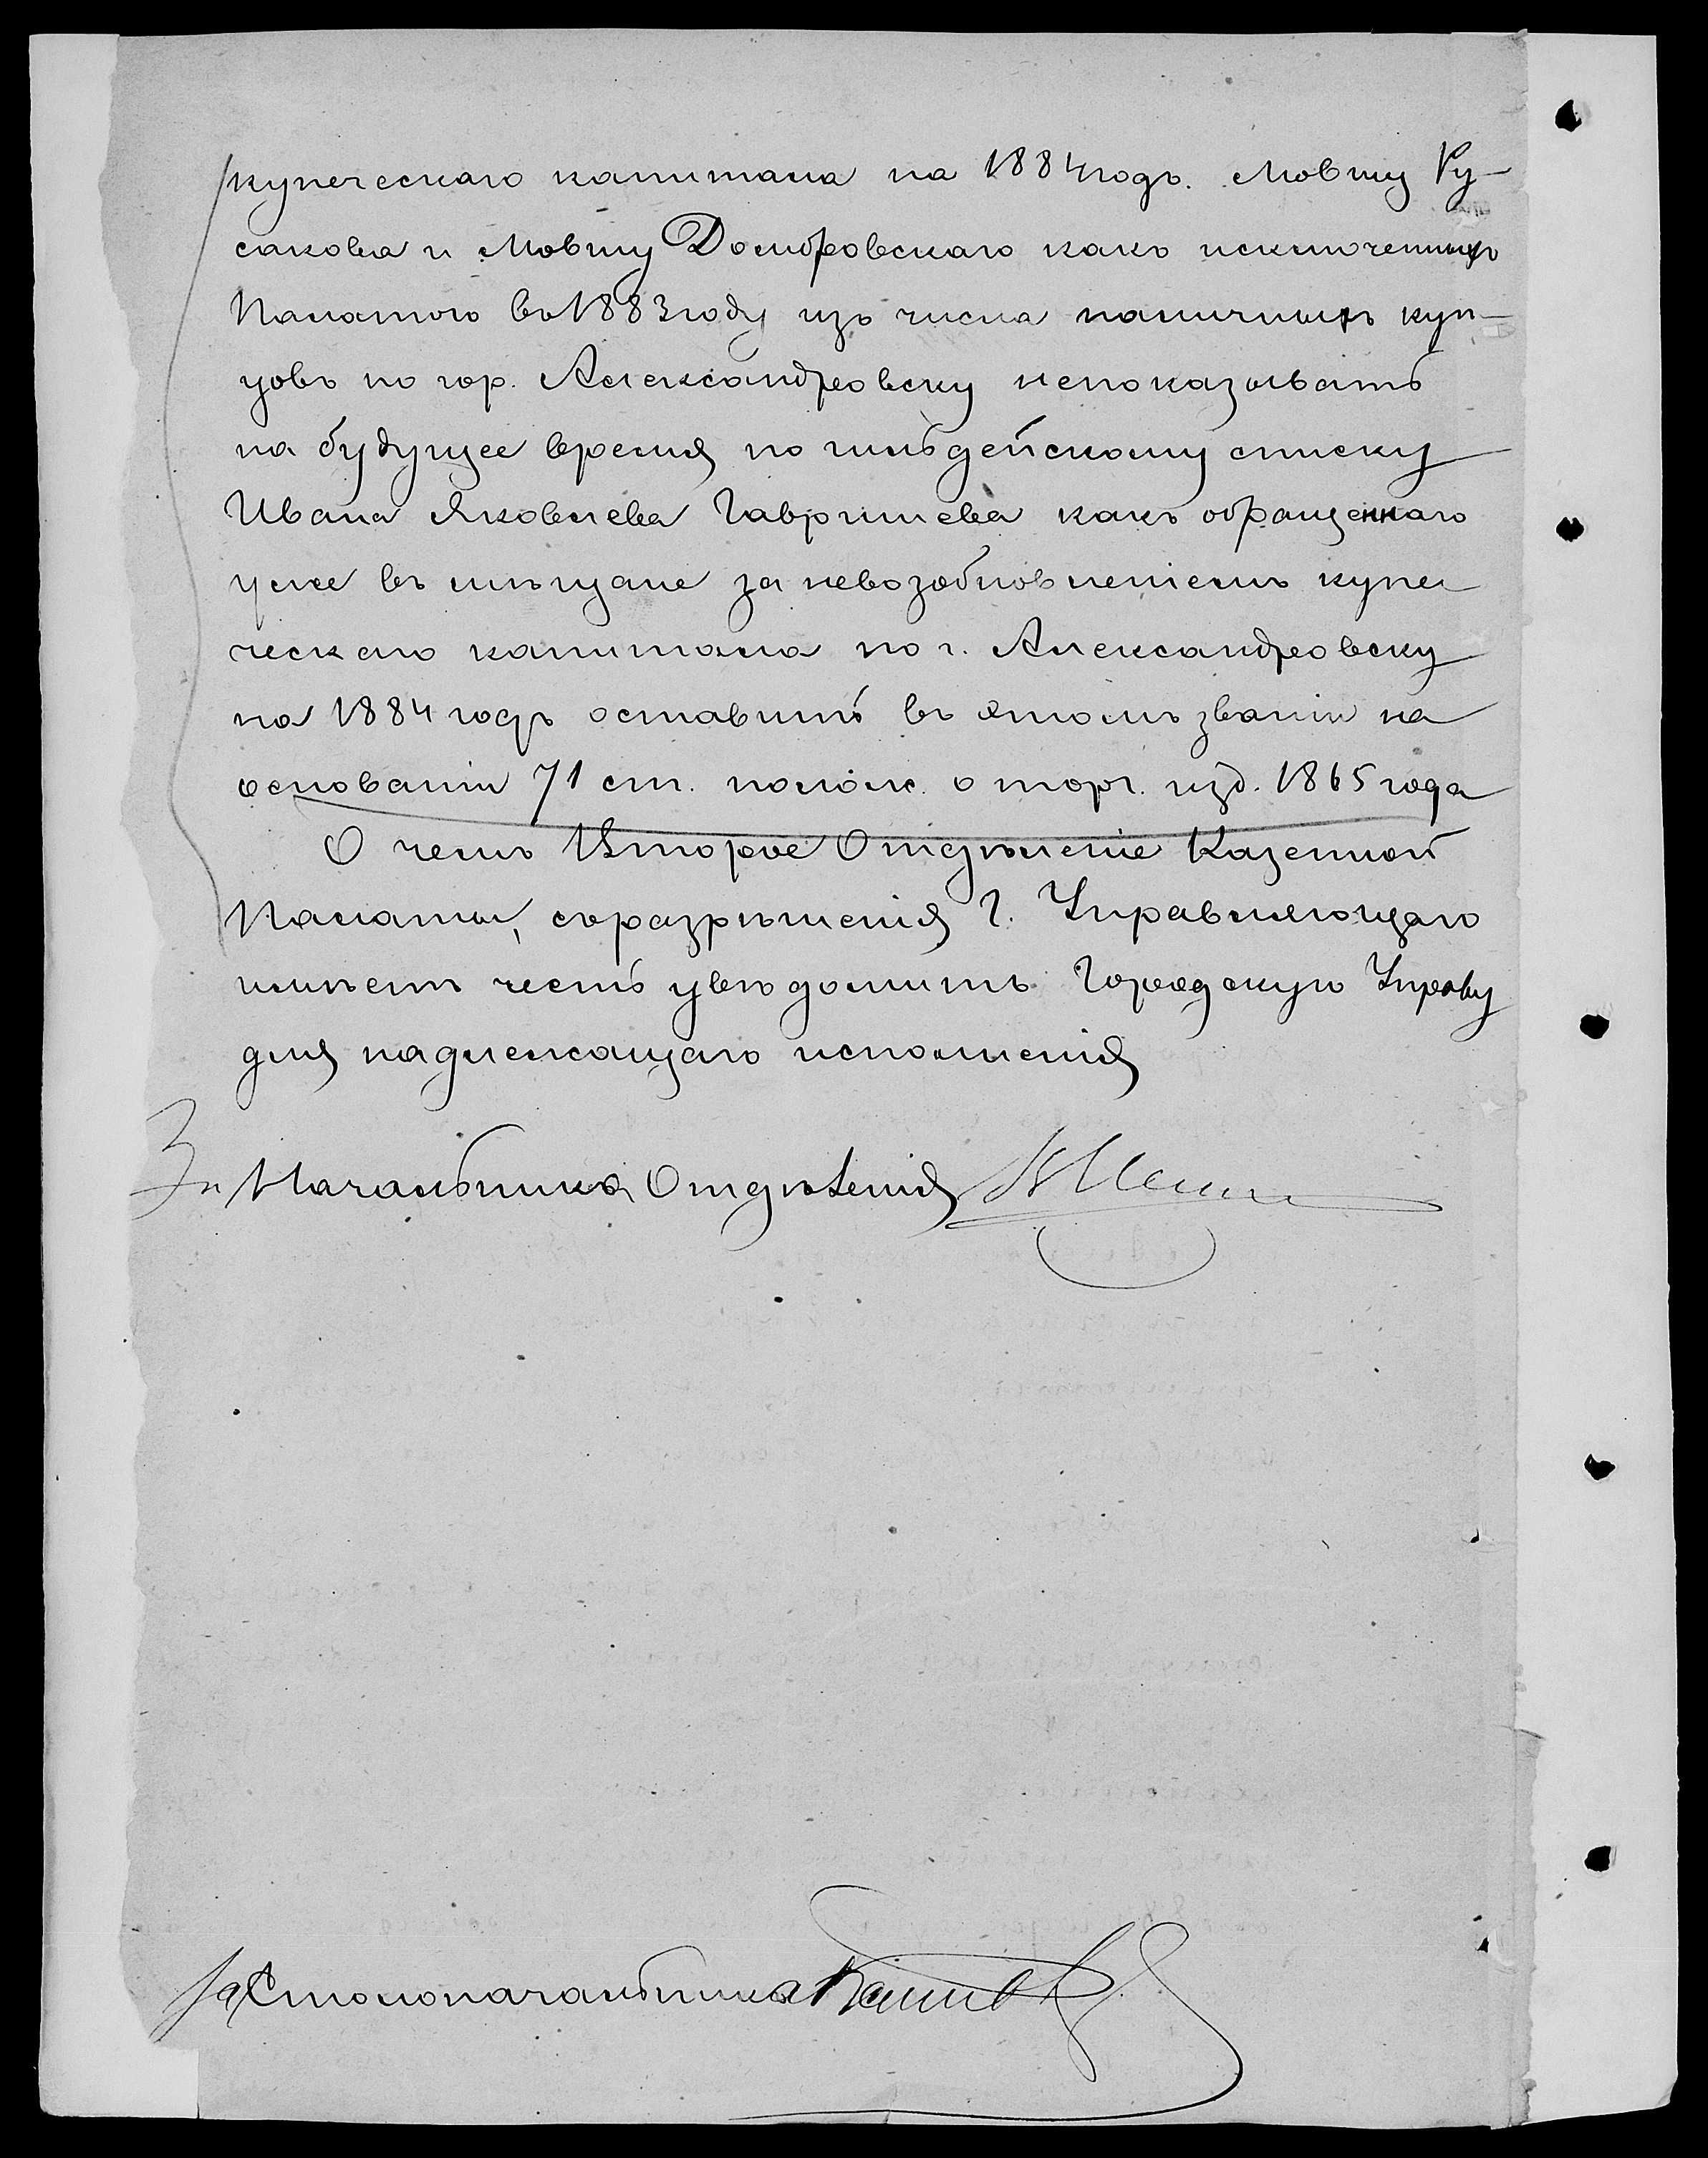 купеческаго капитала на 1884 годъ. Мовшу Ру-
сакова и Мовшу Домбровскаго какъ исключенныхъ
Палатою въ 1883 году изъ числа наличныхъ куп-
цовъ по гор. Александровску непоказывать
на будущее время по гильдейскому списку
Ивана Яковлева Гаврилева какъ обращеннаго
уже въ мѣщане за невозобновленіемъ купе
ческаго капитала по г. Александровску
на 1884 годъ оставить въ этомъ званіи на
основаніи 71 ст. полож. о торг. изд. 1865 года
О чемъ Второе Отдѣленіе Казенной
Палаты, съ разрѣшенія Г. Управляющаго
имѣетъ честь увѣдомить Городскую Управу
для надлежащаго исполненія
За Начальника Отдѣленія
за Столоначальника